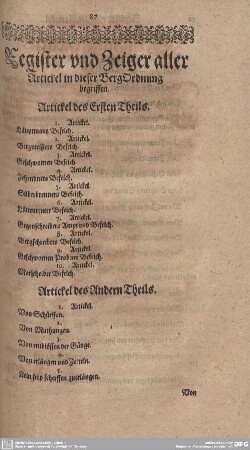 87
Register vnd Zeiger aller
Artickel in dieser BergOrdnung
begriffen.
Artickel des Ersten Theils.
1. Artickel.
Häuptmans Befelch.
2. Artickel.
Bergmeisters Befelch.
3. Artickel.
Geschwornen Befelch.
4. Artickel.
Zehendners Befelch.
5. Artickel.
Silberbrenners Befelch.
6. Artickel.
Hüttenreuter Befelch.
7. Artickel.
Gegenschreibers Ampt vnd Befelch.
8. Artickel.
Bergschreibers Befelch.
9. Artickel.
Geschwornen Probirers Befelch.
10. Artickel.
Marscheider Befelch.
Artickel des Andern Theils.
1. Artickel.
Von Schürffen.
2.
Von Muthungen.
3.
Von entblössen der Gänge.
4.
Von erlängen vnd Zetteln.
5.
Kein frey schurffen zuerlängen.
Von